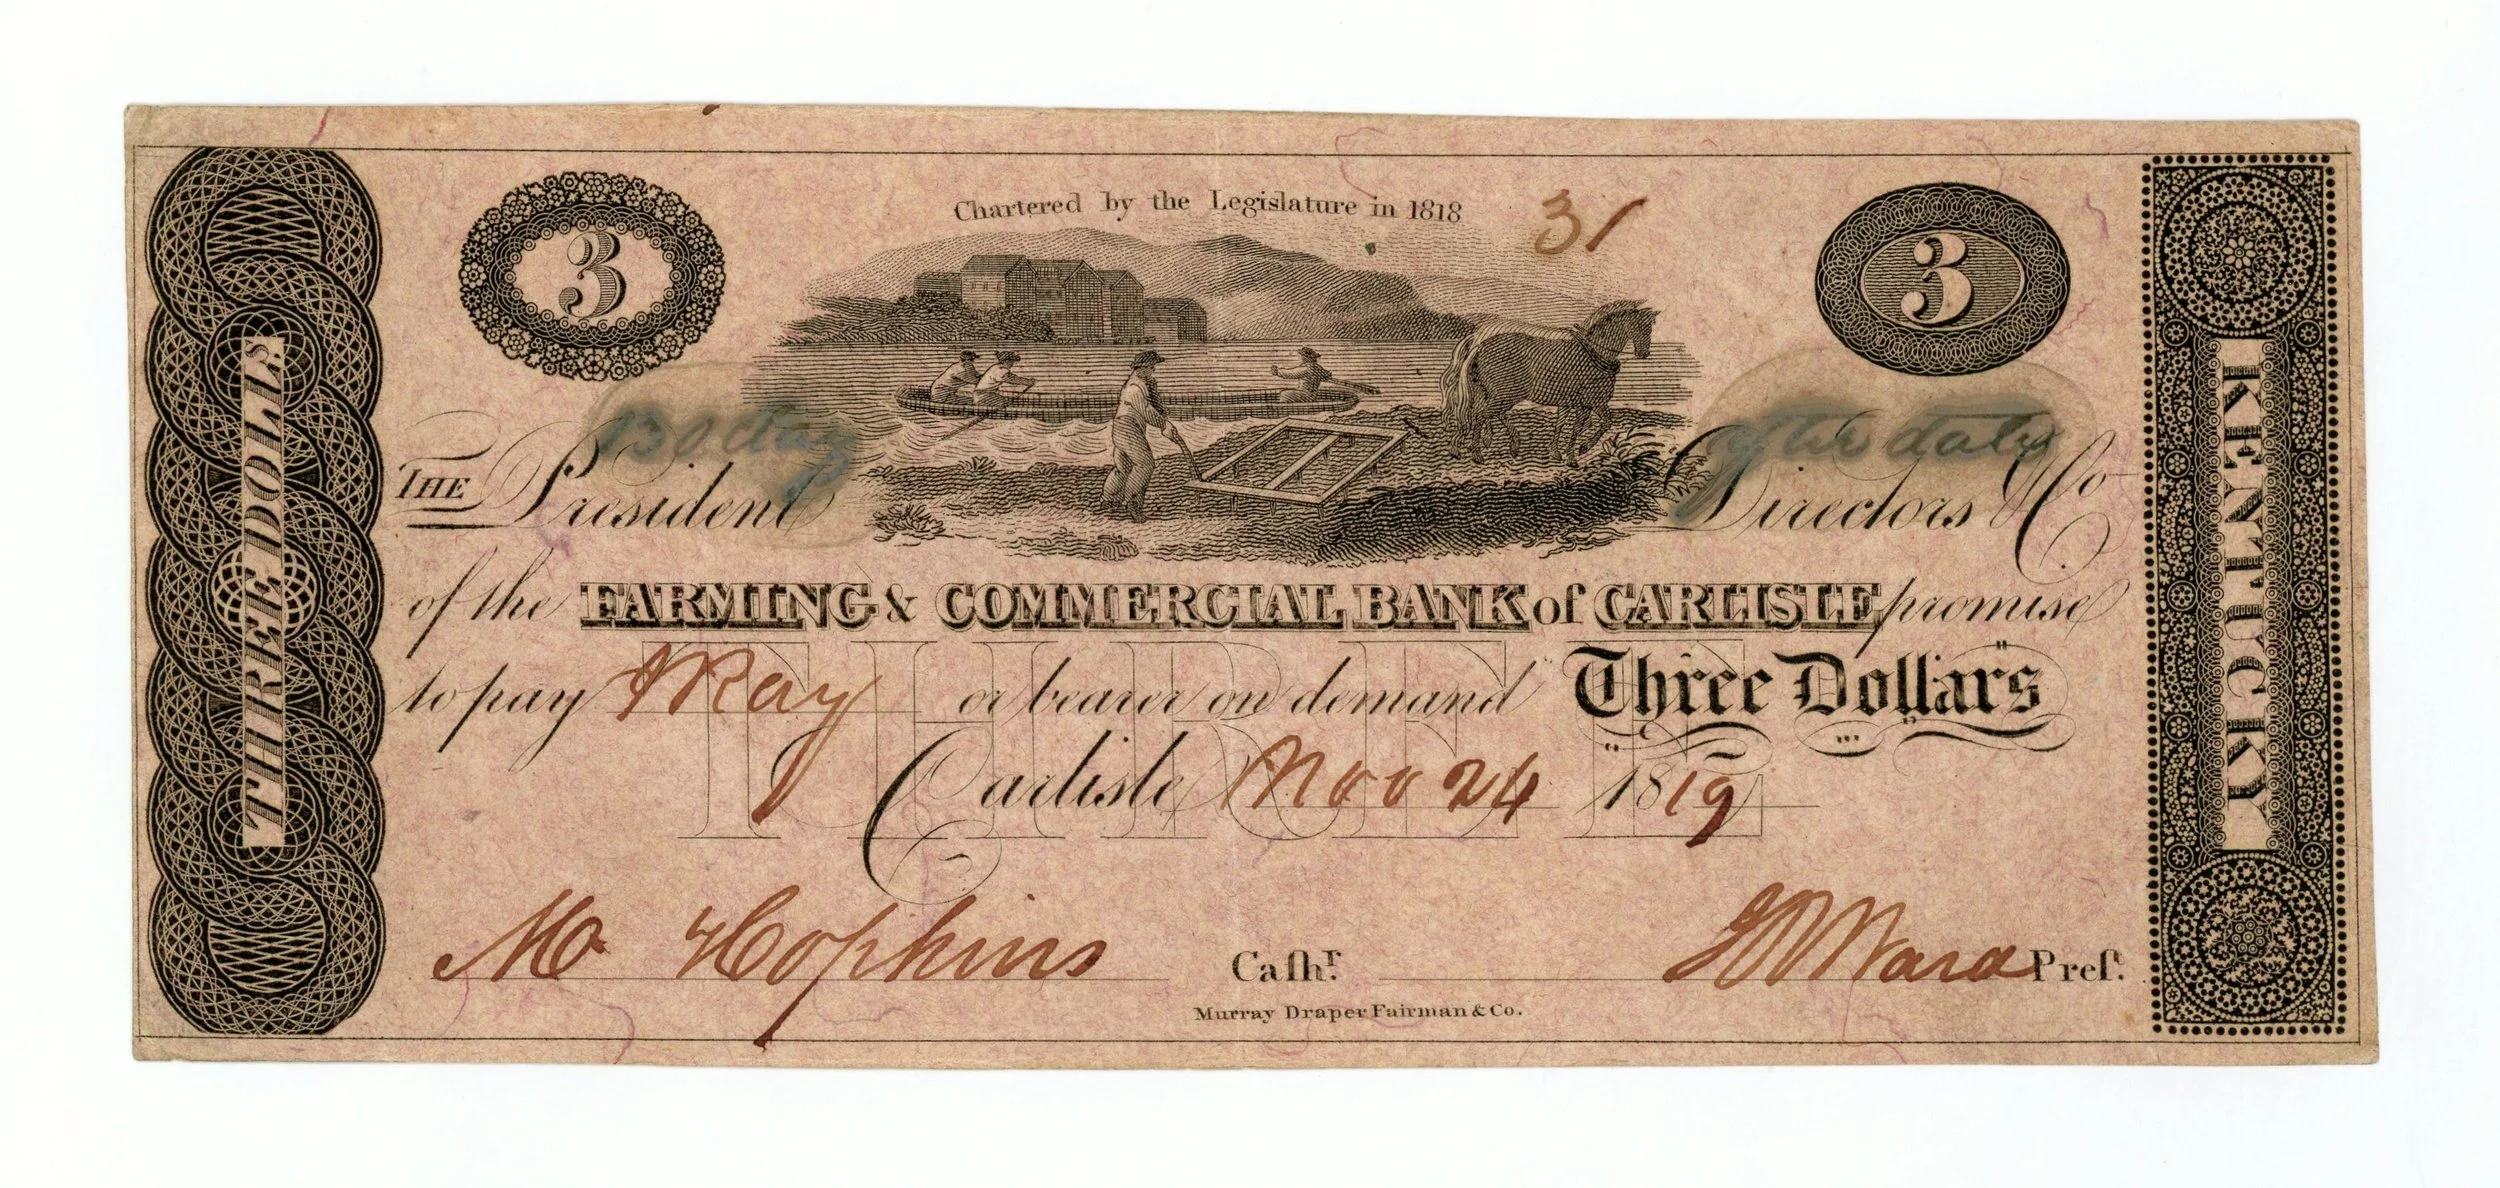 Chartered by the Legislature in 1818
31
3
3
THREE DOLLS
KENTUCKY
after date
THE President Directors & Co
of the FARMING & COMMERCIAL BANK of CARLISLE promise
to pay or bearer on demand Three Dollars
THREE
Carlisle Nov 24 1819
M Hopkins Cashr. Ward Prest.
Murray Draper Fairman & Co.